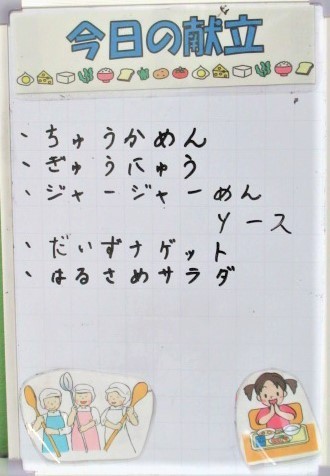 今日の献立
、ちゅうかめん
、ぎゅうにゅう
、ジャージャーめん
ソース
、だいずナゲット
、はるさめサラダ